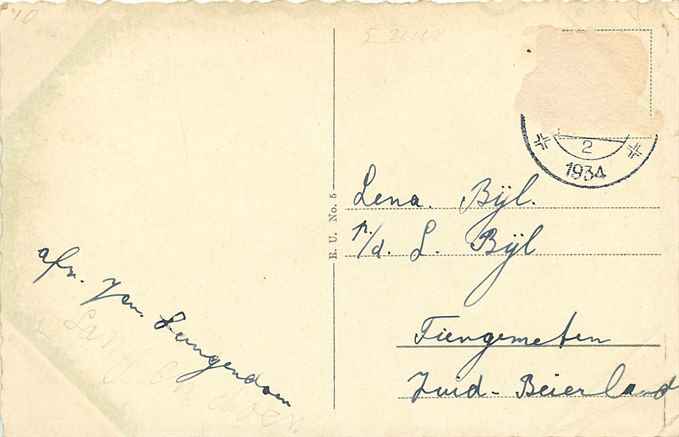 afz. Jm. Langendoen
E. U. No. 5
2
1934
Lena. Bijl.
p/d. L. Bijl
Tiengemeten
Zuid-Beierland